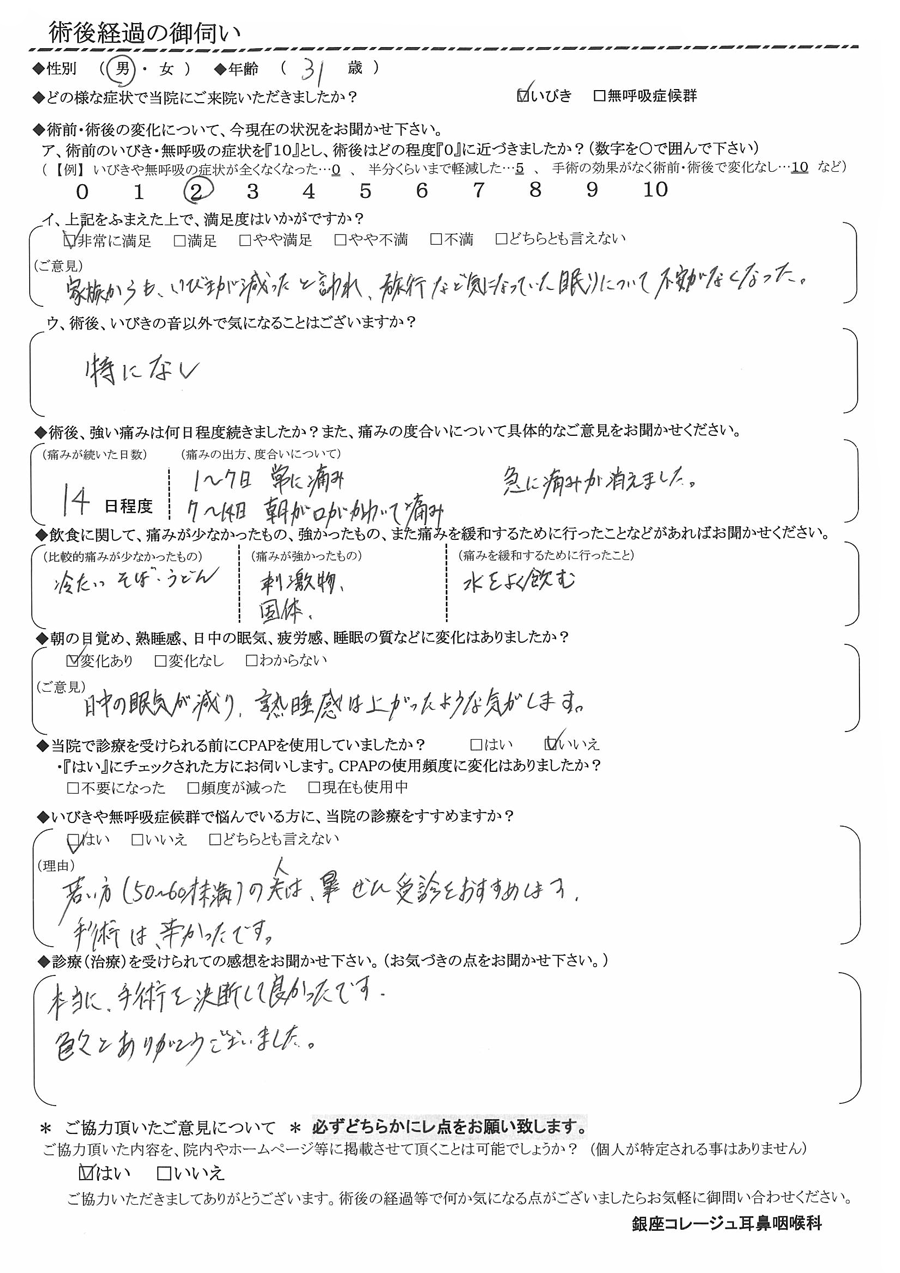 術後経過の御伺い
◆性別 （ 男 ・ 女 ） ◆年齢 （ 31 歳 ）
◆どの様な症状で当院にご来院いただきましたか？ ☑いびき □無呼吸症候群
◆術前・術後の変化について、今現在の状況をお聞かせ下さい。
ア、術前のいびき・無呼吸の症状を『10』とし、術後はどの程度『0』に近づきましたか？（数字を○で囲んで下さい）
（ 【例】 いびきや無呼吸の症状が全くなくなった…0 、 半分くらいまで軽減した…5 、 手術の効果がなく術前・術後で変化なし…10 など）
0 1 2 3 4 5 6 7 8 9 10
イ、上記をふまえた上で、満足度はいかがですか？
☑非常に満足 □満足 □やや満足 □やや不満 □不満 □どちらとも言えない
（ご意見）
家族からも、いびきが減ったと言われ、旅行など気になっていた眠りについて不安がなくなった。
ウ、術後、いびきの音以外で気になることはございますか？
特になし
◆術後、強い痛みは何日程度続きましたか？また、痛みの度合いについて具体的なご意見をお聞かせください。
（痛みが続いた日数） （痛みの出方、度合いについて）
1〜7日 常に痛み 急に痛みが消えました。
14 日程度 7〜14日 朝が口がかわいて痛み
◆飲食に関して、痛みが少なかったもの、強かったもの、また痛みを緩和するために行ったことなどがあればお聞かせください。
（比較的痛みが少なかったもの） （痛みが強かったもの） （痛みを緩和するために行ったこと）
冷たい そば・うどん 刺激物、 水をよく飲む
固体、
◆朝の目覚め、熟睡感、日中の眠気、疲労感、睡眠の質などに変化はありましたか？
☑変化あり □変化なし □わからない
（ご意見）
日中の眠気が減り、熟睡感は上がったような気がします。
◆当院で診療を受けられる前にCPAPを使用していましたか？ □はい ☑いいえ
・『はい』にチェックされた方にお伺いします。CPAPの使用頻度に変化はありましたか？
□不要になった □頻度が減った □現在も使用中
◆いびきや無呼吸症候群で悩んでいる方に、当院の診療をすすめますか？
☑はい □いいえ □どちらとも言えない
（理由）
若い方（50〜60才未満）の人は、ぜひ受診をおすすめします。
手術は、辛かったです。
◆診療（治療）を受けられての感想をお聞かせ下さい。（お気づきの点をお聞かせ下さい。）
本当に、手術を決断して良かったです。
色々とありがとうございました。
＊ ご協力頂いたご意見について ＊ 必ずどちらかにレ点をお願い致します。
ご協力頂いた内容を、院内やホームページ等に掲載させて頂くことは可能でしょうか？ （個人が特定される事はありません）
☑はい □いいえ
ご協力いただきましてありがとうございます。術後の経過等で何か気になる点がございましたらお気軽に御問い合わせください。
銀座コレージュ耳鼻咽喉科